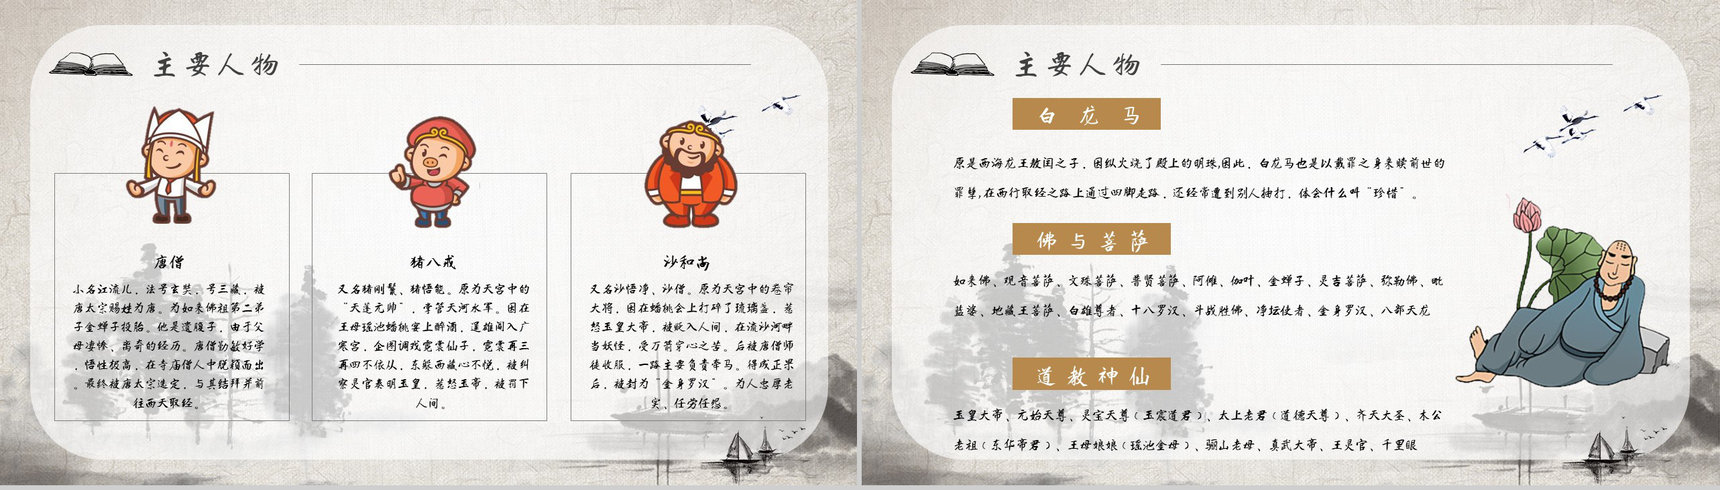 主要人物
唐僧
小名江流儿，法号玄奘，号三藏，被
唐太宗赐姓为唐。为如来佛祖第二弟
子金蝉子投胎。他是遗腹子，由于父
母凄惨、离奇的经历。唐僧勤敏好学
，悟性极高，在寺庙僧人中脱颖而出
。最终被唐太宗选定，与其结拜并前
往西天取经。
猪八戒
又名猪刚鬣、猪悟能。原为天宫中的
“天蓬元帅”，掌管天河水军。因在
王母瑶池蟠桃宴上醉酒，逞雄闯入广
寒宫，企图调戏霓裳仙子，霓裳再三
再四不依从，东躲西藏心不悦，被纠
察灵官奏明玉皇，惹怒玉帝，被罚下
人间。
沙和尚
又名沙悟净、沙僧。原为天宫中的卷帘
大将，因在蟠桃会上打碎了琉璃盏，惹
怒玉皇大帝，被贬入人间，在流沙河畔
当妖怪，受万箭穿心之苦。后被唐僧师
徒收服，一路主要负责牵马。得成正果
后，被封为“金身罗汉”。为人忠厚老
实、任劳任怨。
主要人物
白龙马
原是西海龙王敖闰之子，因纵火烧了殿上的明珠,因此，白龙马也是以戴罪之身来赎前世的
罪孽,在西行取经之路上通过四脚走路，还经常遭到别人抽打，体会什么叫“珍惜”。
佛与菩萨
如来佛、观音菩萨、文殊菩萨、普贤菩萨、阿傩、伽叶、金蝉子、灵吉菩萨、弥勒佛、毗
蓝婆、地藏王菩萨、白雄尊者、十八罗汉、斗战胜佛、净坛使者、金身罗汉、八部天龙
道教神仙
玉皇大帝、元始天尊、灵宝天尊（玉宸道君）、太上老君（道德天尊）、齐天大圣、木公
老祖（东华帝君）、王母娘娘（瑶池金母）、骊山老母、真武大帝、王灵官、千里眼